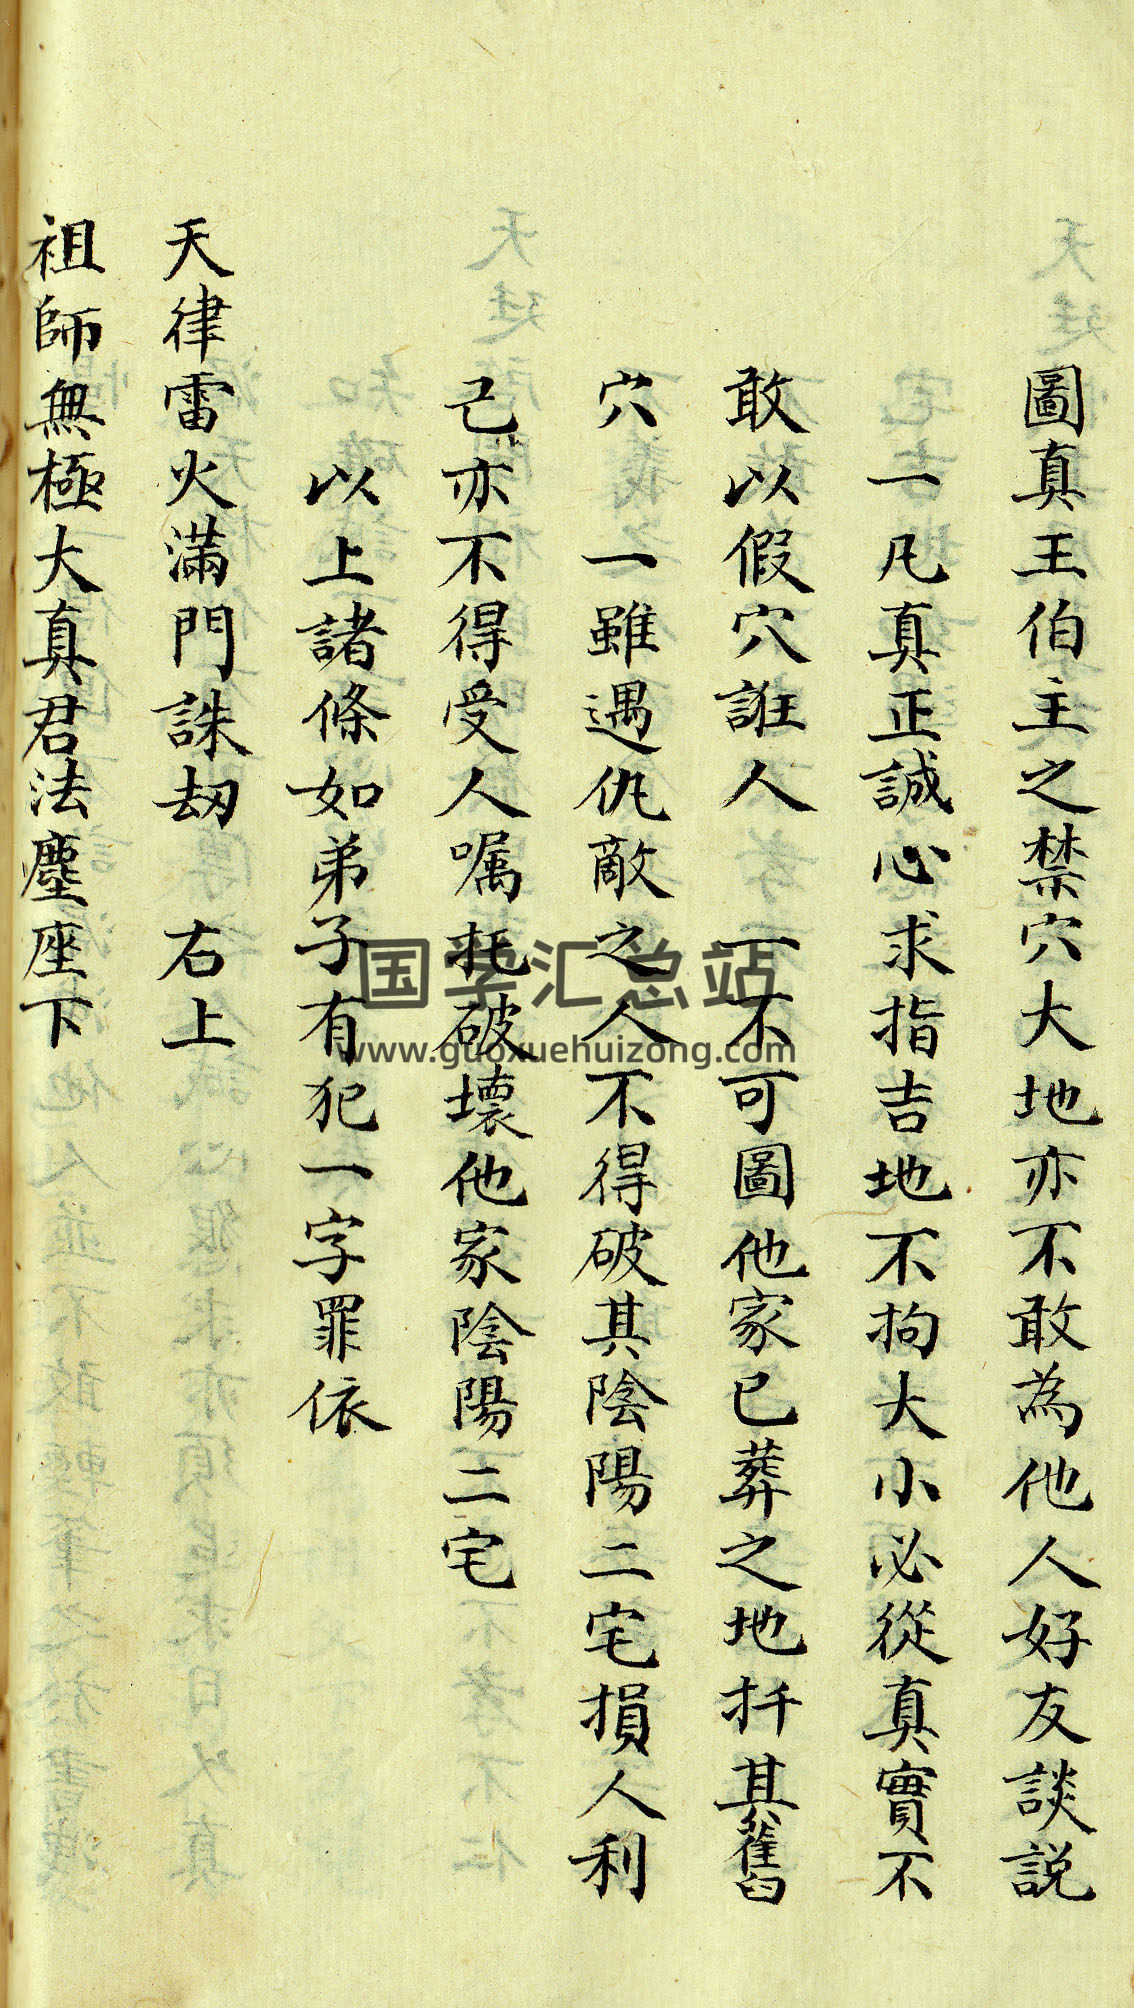 圖真王伯主之禁穴大地亦不敢為他人好友談説
一凡真正誠心求指吉地不拘大小必從真實不
敢以假穴誑人　一不可圖他家已葬之地扦其舊
穴　一雖遇仇敵之人不得破其陰陽二宅損人利
己亦不得受人嘱托破壞他家陰陽二宅
以上諸條如弟子有犯一字罪依
天律雷火滿門誅劫　右上
祖師無極大真君法塵座下
国学汇总站
www.guoxuehuizong.com